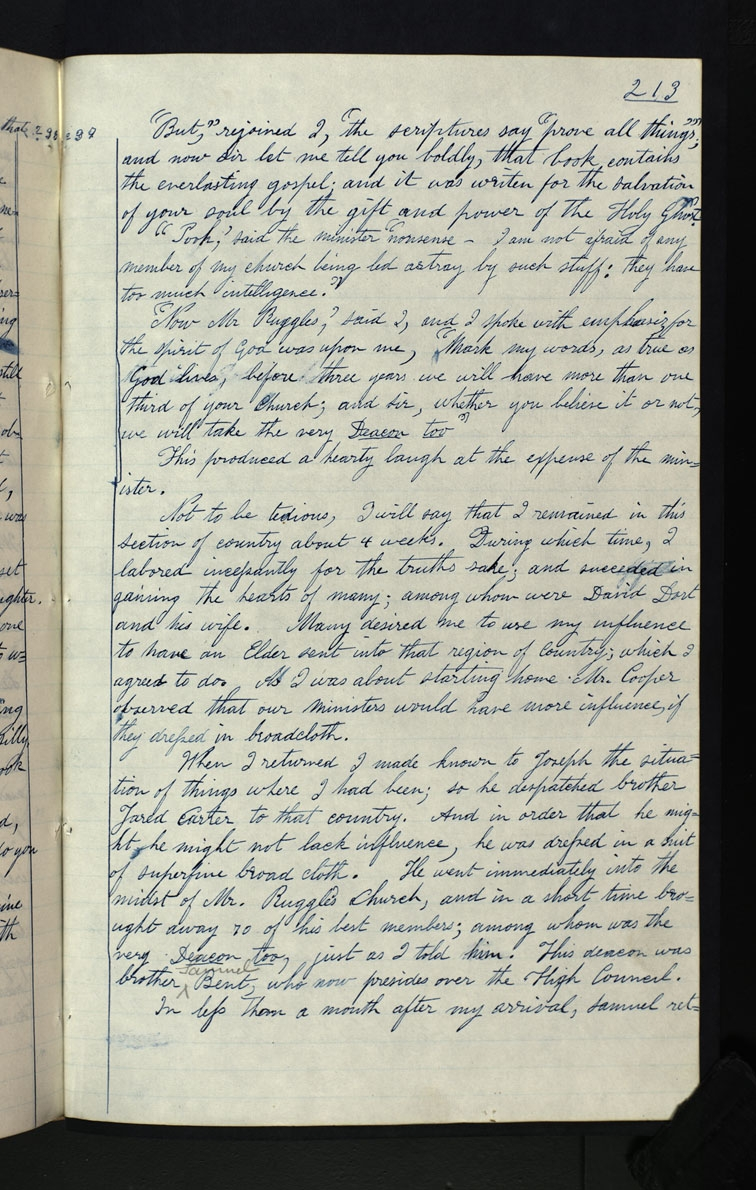 213
"But," rejoined I, "the scriptures say "prove all things";"
and now sir let me tell you boldly, that book contains
the everlasting gospel; and it was writen for the salvation
of your soul by the gift and power of the Holy Ghost."
"Pooh," said the minister "nonsense – I am not afraid of any
member of my church being led astray by such stuff: they have
too much intelligence."
"Now Mr Ruggles," said I, and I spoke with emphasiz, for
the spirit of God was upon me, "Mark my words, as true as
God lives, before three years we will have more than one
third of your Church; and sir, whether you believe it or not,
we will take the very Deacon too"
This produced a hearty laugh at the expense of the min=
ister.
Not to be tedious, I will say that I remained in this
section of country about 4 weeks. During which time, I
labored incessantly for the truths sake; and succeded in
gaining the hearts of many; among whom were David Dort
and his wife. Many desired me to use my influence
to have an Elder sent into that region of country; which I
agreed to do. As I was about starting home Mr. Cooper
observed that our ministers would have more influence, if
they dressed in broadcloth.
When I returned I made known to Joseph the situa=
tion of things where I had been; so he despatched brother
Jared Carter to that country. And in order that he mig=
ht, he might not lack influence, he was dressed in a suit
of superfine broad cloth. He went immediately into the
midst of Mr. Ruggles Church, and in a short time bro=
ught away 70 of his best members; among whom was the
very Deacon too, just as I told him. This deacon was
brother ^ Samuel Bent, who now presides over the High Council.
In less than a month after my arrival, Samuel ret=